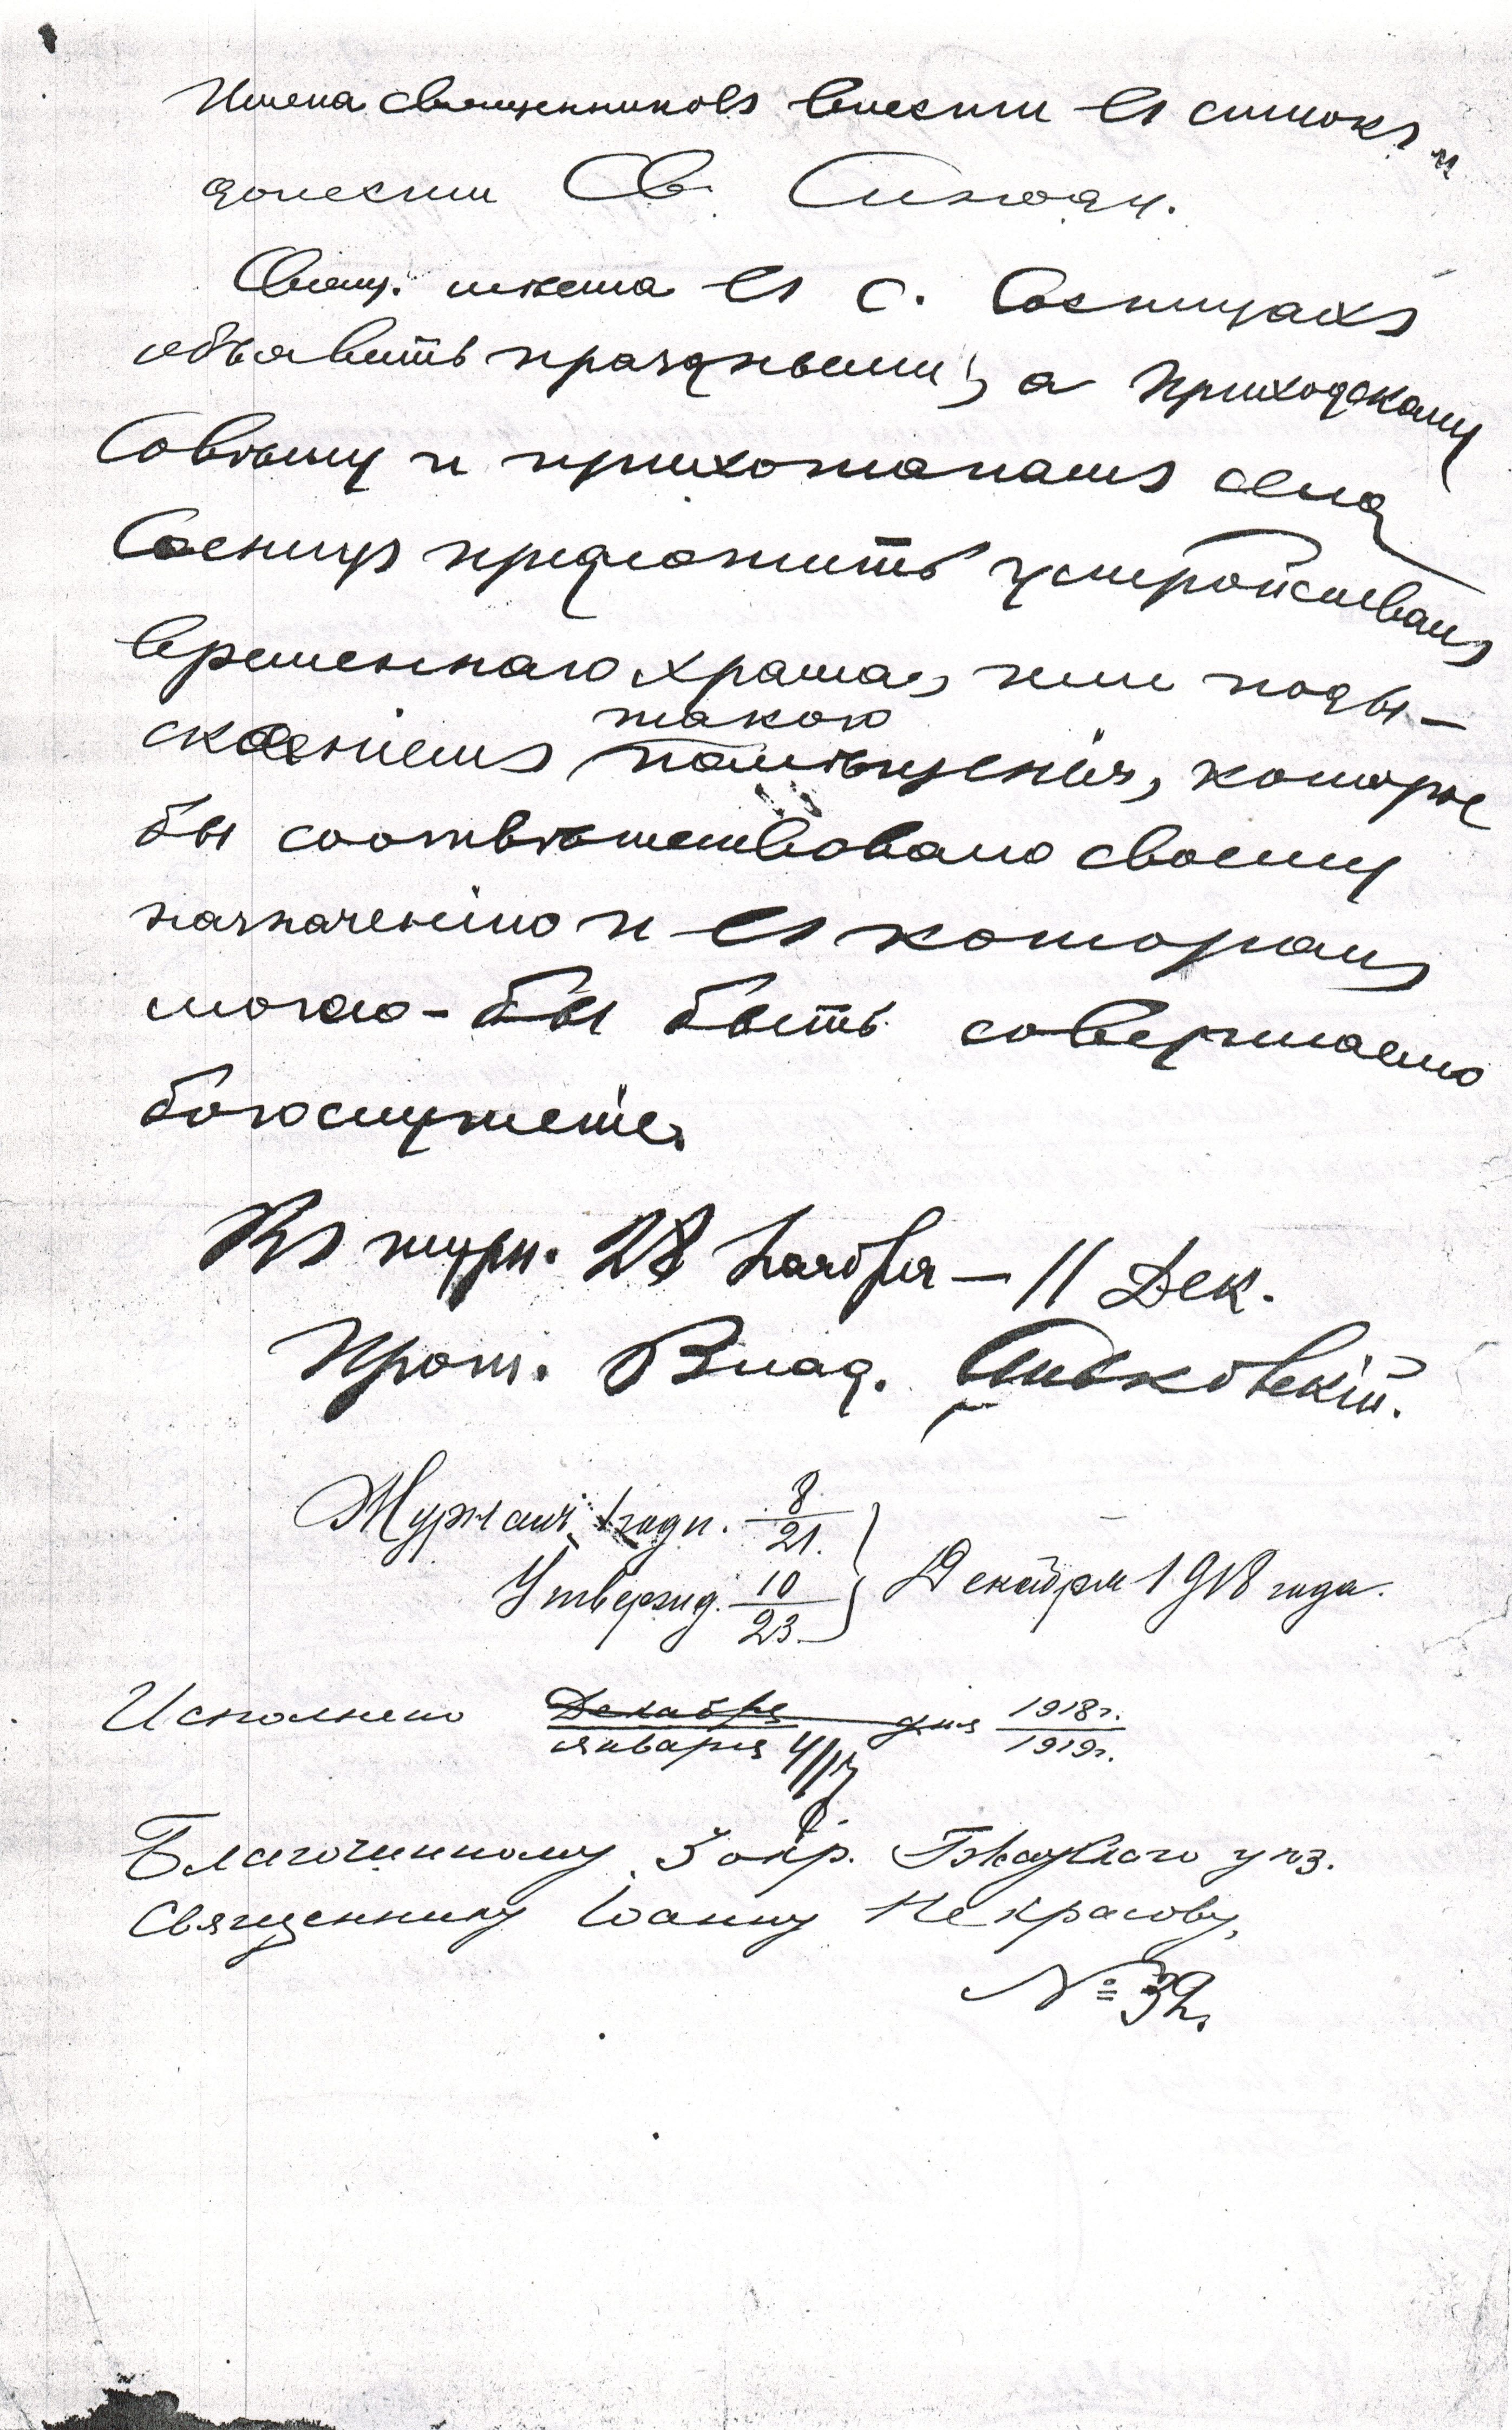 Имена священниковъ внести въ списокъ и
донести Св. Синоду.
Свящ. мѣста въ с. Состицахъ
объявить праздными, а Приходскому
Совѣту и прихожанамъ села
предложить устройствомъ
временнаго храма, или поды-
сканіемъ такого
помѣщенія, которое
бы соотвѣтствовало своему
назначенію и въ которомъ
могло-бы быть совершаемо
богослуженіе.
Къ журн. 28 Ноября — 11 Дек.
Прот. Влад.
Журналъ подп. 8/21.
Утвержд. 10/23. Декабря 1918 года.
Исполнено Декабря дня 1918г.
января 4/17 1919г.
Благочинному 3 окр. Гжатскаго уѣз.
Священнику Іоанну Некрасову,
№ 39.